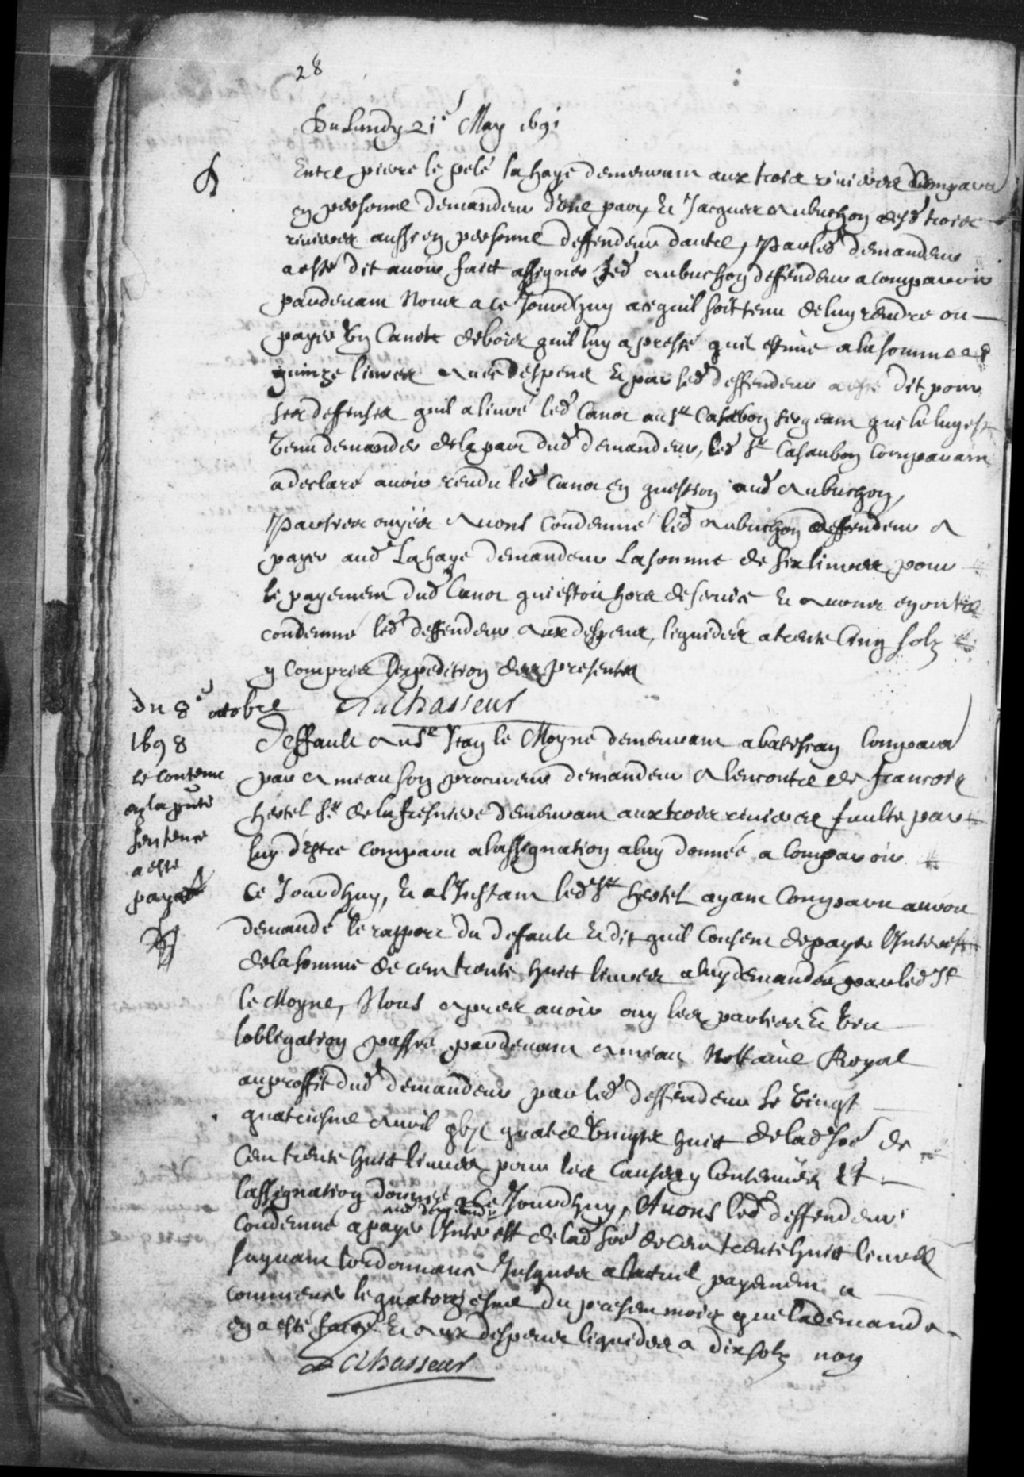 28
Du Lundy 21e May 1691
Entre pierre le pelé lahaye demeurant aux trois rivieres Comparu
en personne demandeur d'une part Et Jacques Aubuchon desd trois
rivieres aussi en personne deffendeur dautre, Par led demandeur
a esté dit avoir fait assigner led Aubuchon deffendeur a comparoir
pardevant Nous a ce Jourdhuy a ce quil soit tenu de luy rendre ou
payer un Canot de bois quil luy a presté quil estime a la somme de
quinze livres avec despens Et par led deffendeur a esté dit pour
ses deffenses quil a livré led Canot au Sr Casabon sergeant qui le luy est
venu demander de la part dud demandeur, led Sr Casaubon Comparant
a declaré avoir rendu led Canot en question aud Aubuchon,
Parties ouyes Avons Condemné led Aubuchon deffendeur a
payer aud Lahaye demandeur La somme de six livres pour
le payement dud Canot qui estoit hors de service Et Avons en outre
condemné led deffendeur aux despens, liquidés a trente Cinq solz
y Compris lexpedition des presentes
Lechasseur
du 8e octobre
1698
le contenu
en la pnte
sentence
a esté
payé
Deffault au Sr Jean le Moyne demeurant a batiscan Comparant
par Ameau son procureur demandeur A lencontre de francois
hertel Sr de la fresniere demeurant aux trois rivieres faulte par
luy d'estre Comparu a lassignation a luy donnée a Comparoir
Ce Jourdhuy, Et a l'Instant led Sr hertel ayant Comparu auroit
demandé le rapport du default Et dit quil Consent de payer l'Interest
de la somme de cent trente huict livres a luy demandée par led Sr
le Moyne, Nous apres avoir ouy les parties Et veu
lobligation passée pardevant Ameau Nottaire Royal
au proffit dud demandeur par led deffendeur le vingt
quatriesme Avril gbjc quatre vingts huit de lad Soe de
Cent trente huit livres pour les Causes y Contenües Et
lassignation donnée a Ce Jourdhuy, Avons led deffendeur
aud demandeur
Condemné a payer l'Interest de lad Soe de cent trente huit livres
suyvant lordonnance Jusques a lactuel payement a
commencer le quatorziesme du present mois que la demande
en a esté faite Et aux despens liquidés a dix solz
Lechasseur